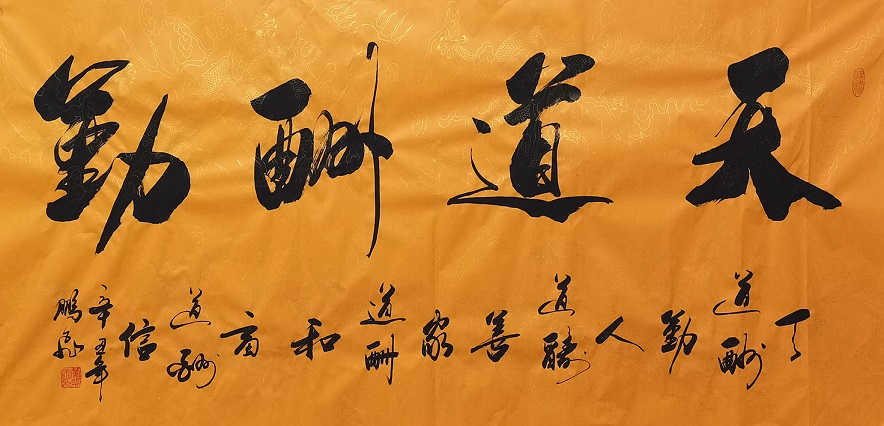 天道酬勤
天道酬勤人道酬善家道酬和商道酬信
辛丑年
鵬